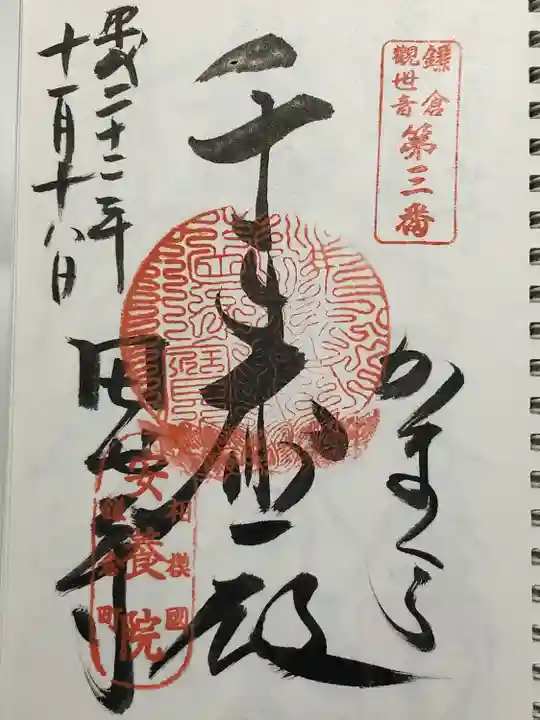 鎌倉
觀世音
第三番
かまくら
千手大悲殿
田代寺
平成二十二年
十一月十八日
相模國
安養院
鎌倉町